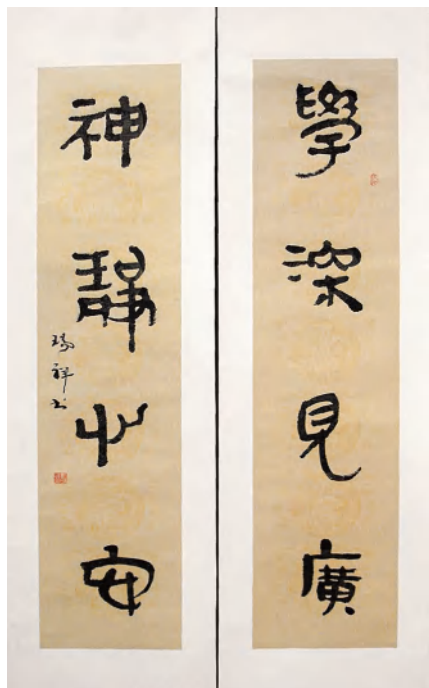 學深見廣
神靜心安
瑞祥书